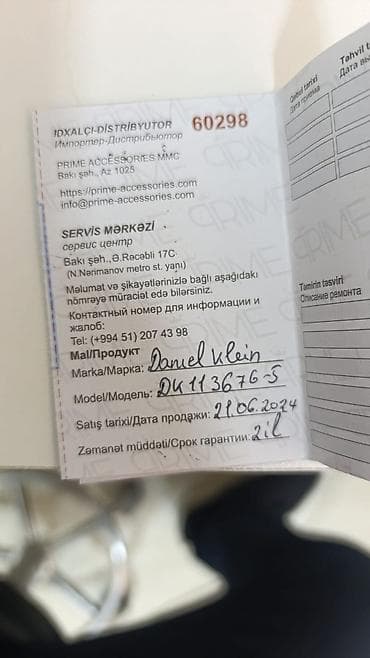 IDXALÇI-DİSTRİBYUTOR 60298
Импортер-Дистрибьютор
PRIME ACCESSORIES MMC
Bakı şəh., Az 1025
https://prime-accessories.com
info@prime-accessories.com
SERVİS MƏRKƏZİ
сервис центр
Bakı şəh.,Ə.Rəcəbli 17C
(N.Nərimanov metro st. yanı)
Məlumat və şikayətlərinizlə bağlı aşağıdakı
nömrəyə müraciət edə bilərsiniz.
Контактный номер для информации и
жалоб:
Tel: (+994 51) 207 43 98
Mal/Продукт
Marka/Марка: Daniel Klein
Model/Модель: DK113676-5
Satış tarixi/Дата продажи: 21.06.2024
Zəmanət müddəti/Срок гарантии: 2 il
Qəbul tarixi
Дата приема
Təhvil t
Дата вы
Təmirin təsviri
Описание ремонта
PRIME